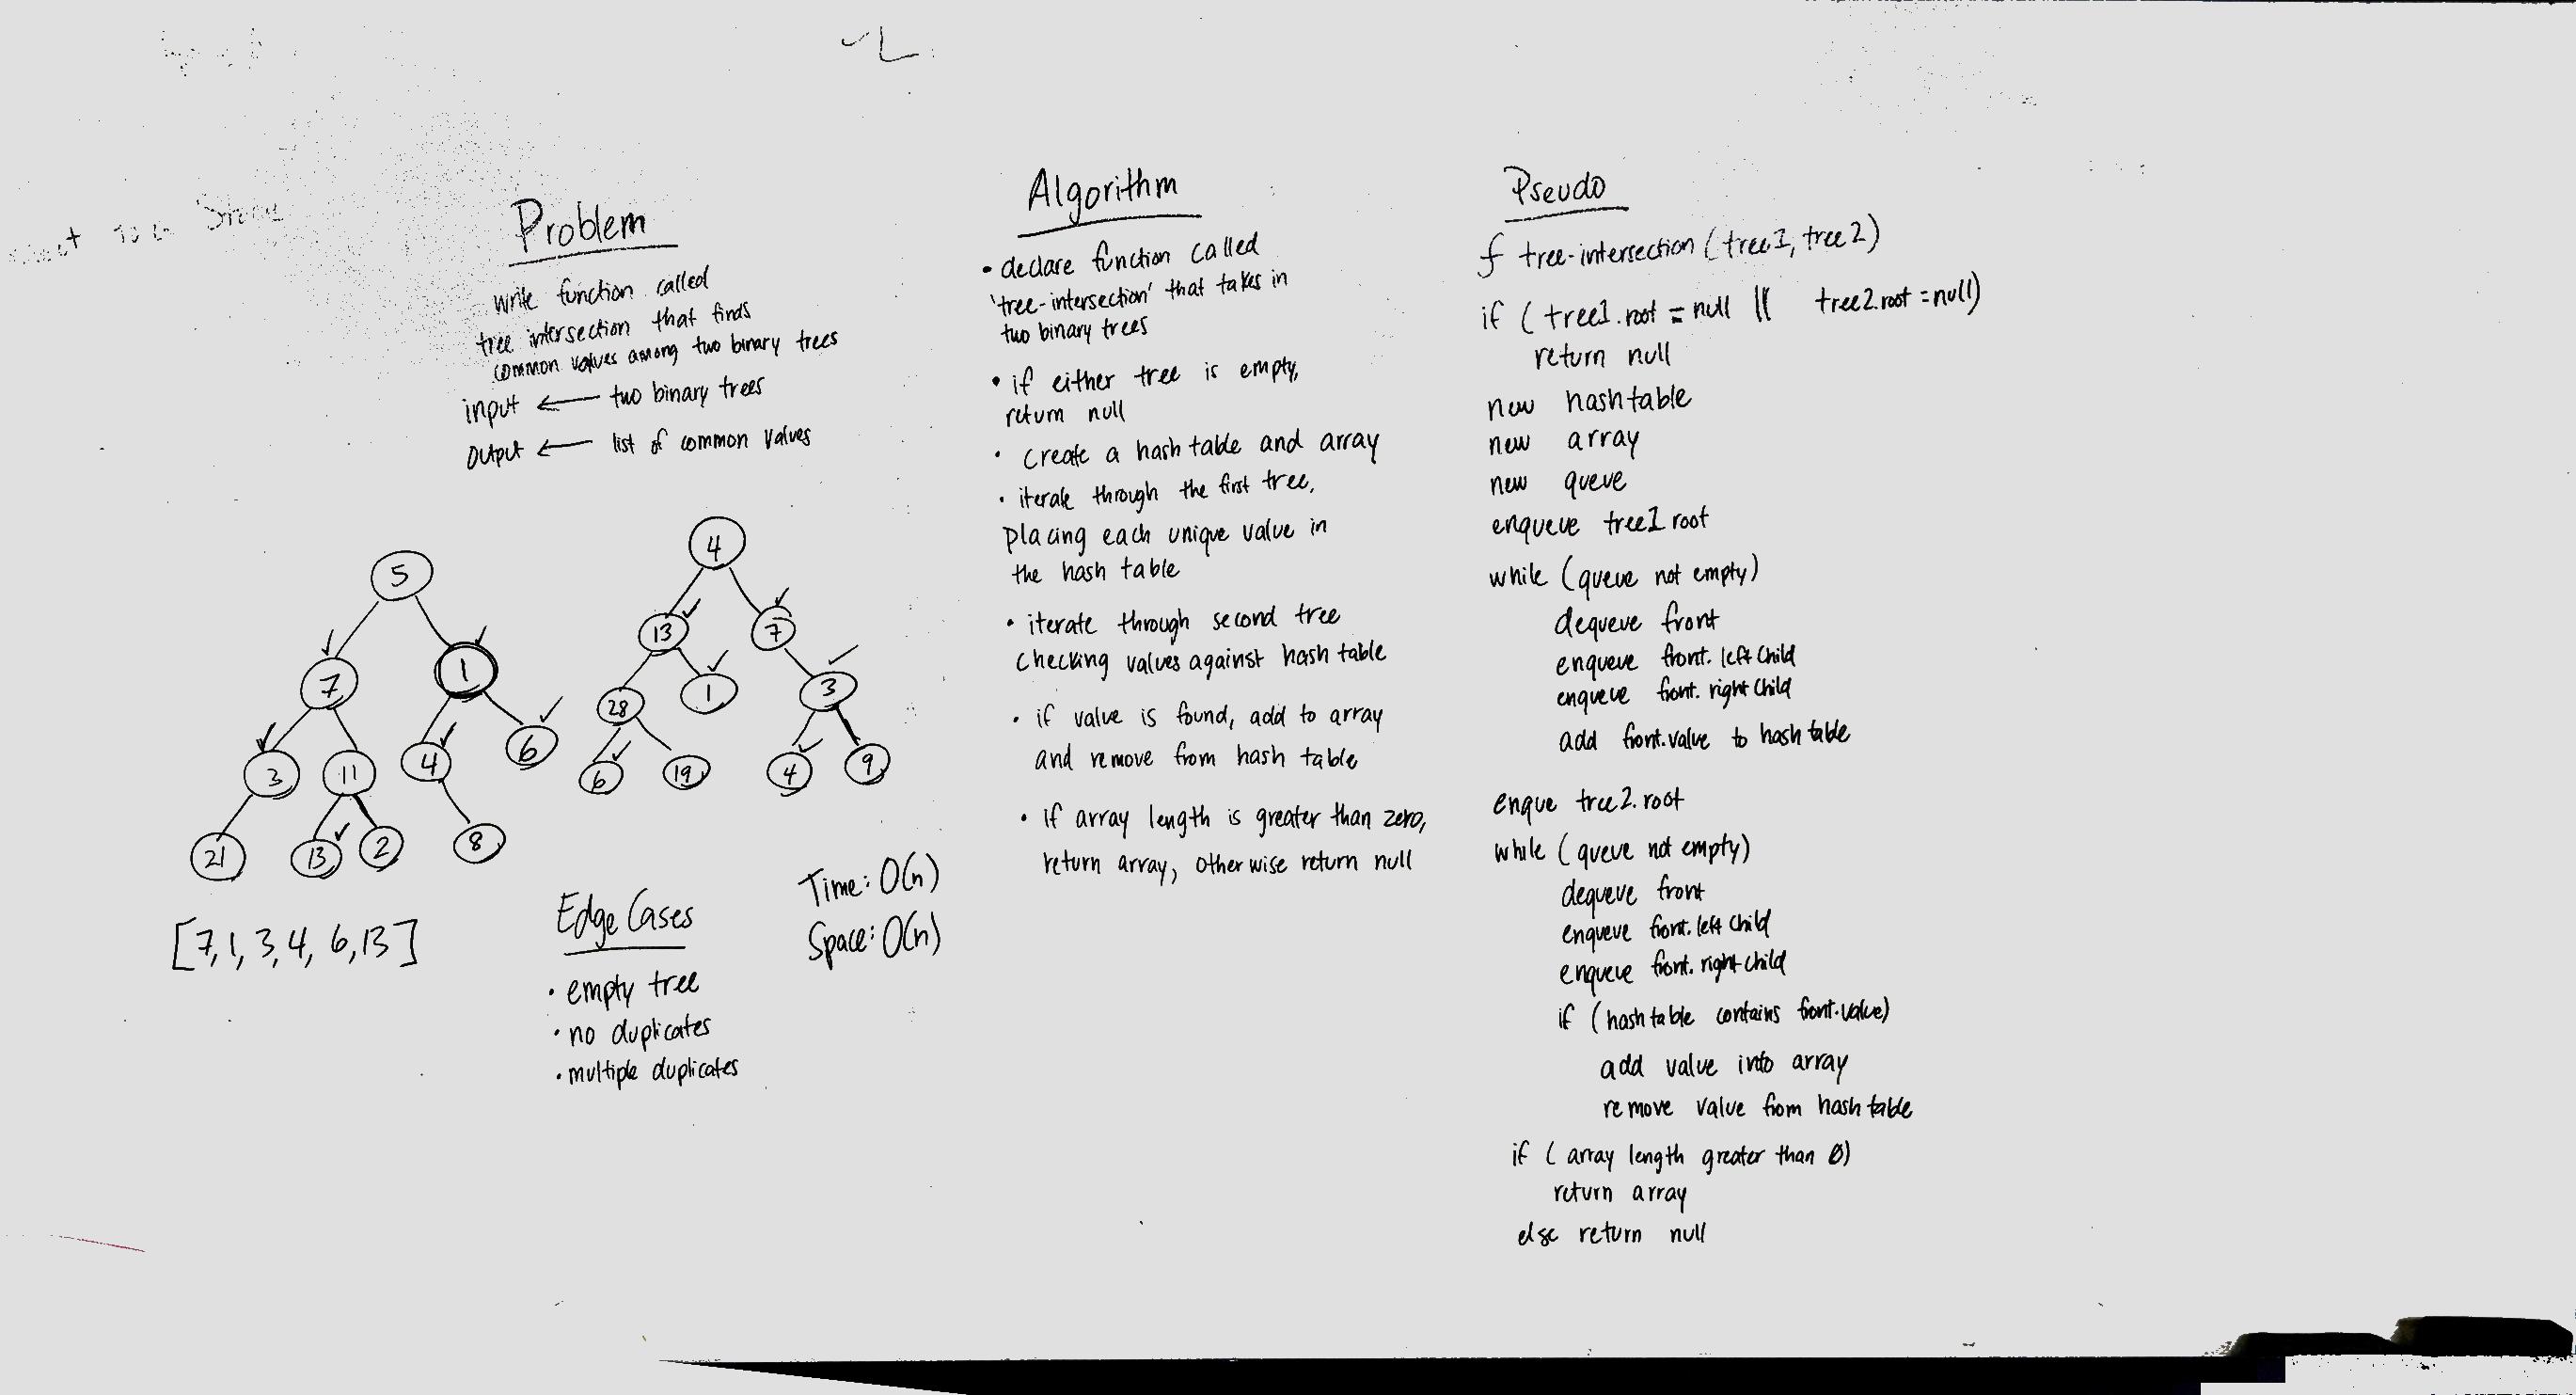 Problem
write function called
tree intersection that finds
common values among two binary trees
input ← two binary trees
output ← list of common values
5
7 1
3 11 4 6
21 13 2 8
4
13 7
28 1 3
6 19 4 9
[7, 1, 3, 4, 6, 13]
Edge Cases
• empty tree
• no duplicates
• multiple duplicates
Time: O(n)
Space: O(n)
Algorithm
• declare function called
'tree-intersection' that takes in
two binary trees
• if either tree is empty,
return null
• create a hash table and array
• iterate through the first tree,
placing each unique value in
the hash table
• iterate through second tree
checking values against hash table
• if value is found, add to array
and remove from hash table
• if array length is greater than zero,
return array, otherwise return null
Pseudo
f tree-intersection (tree1, tree2)
if (tree1.root = null || tree2.root = null)
return null
new hashtable
new array
new queue
enqueue tree1 root
while (queue not empty)
dequeue front
enqueue front.leftChild
enqueue front.rightChild
add front.value to hash table
enque tree2.root
while (queue not empty)
dequeue front
enqueue front.left child
enqueue front.rightchild
if (hashtable contains front.value)
add value into array
remove value from hashtable
if (array length greater than 0)
return array
else return null